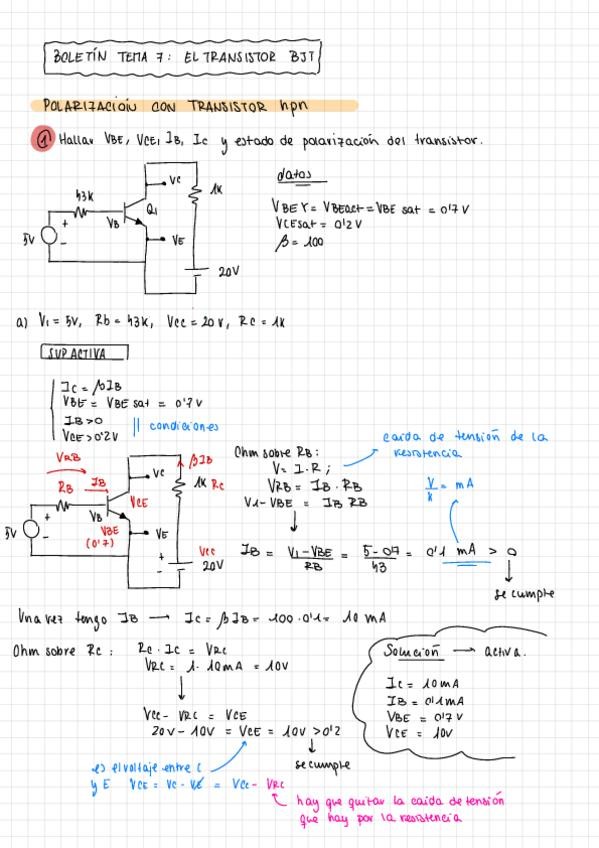 BOLETÍN TEMA 7: EL TRANSISTOR BJT
POLARIZACIÓN CON TRANSISTOR npn
① Hallar VBE, VCE, IB, Ic y estado de polarización del transistor.
datos
VBE γ = VBEact = VBE sat = 0'7 V
VCEsat = 0'2 V
β = 100
43K
5V
+
-
VB
Q1
VC
VE
1K
20V
a) V1 = 5V, Rb = 43K, Vcc = 20V, Rc = 1K
SUP ACTIVA
Ic = βIB
VBE = VBE sat = 0'7 V
IB>0
VCE>0'2V
condiciones
VRB
RB
IB
5V
+
-
VB
VBE
(0'7)
VC
VCE
VE
βIB
1K Rc
Vcc
+
-
20V
Ohm sobre RB:
V = I.R ;
VRB = IB . RB
V1 - VBE = IB RB
caída de tensión de la
resistencia
V/K = mA
IB = V1-VBE/RB = 5-07/43 = 0'1 mA > 0
se cumple
Una vez tengo IB → Ic = βIB = 100.0'1 = 10 mA
Ohm sobre Rc :
Rc . Ic = VRC
VRC = 1. 10mA = 10V
Vcc - VRC = VCE
20V - 10V = VCE = 10V >0'2
se cumple
es el voltaje entre C
y E VCE = VC - VE = Vcc - VRC
hay que quitar la caída de tensión
que hay por la resistencia
Solución → activa.
Ic = 10mA
IB = 0'1mA
VBE = 0'7V
VCE = 10V